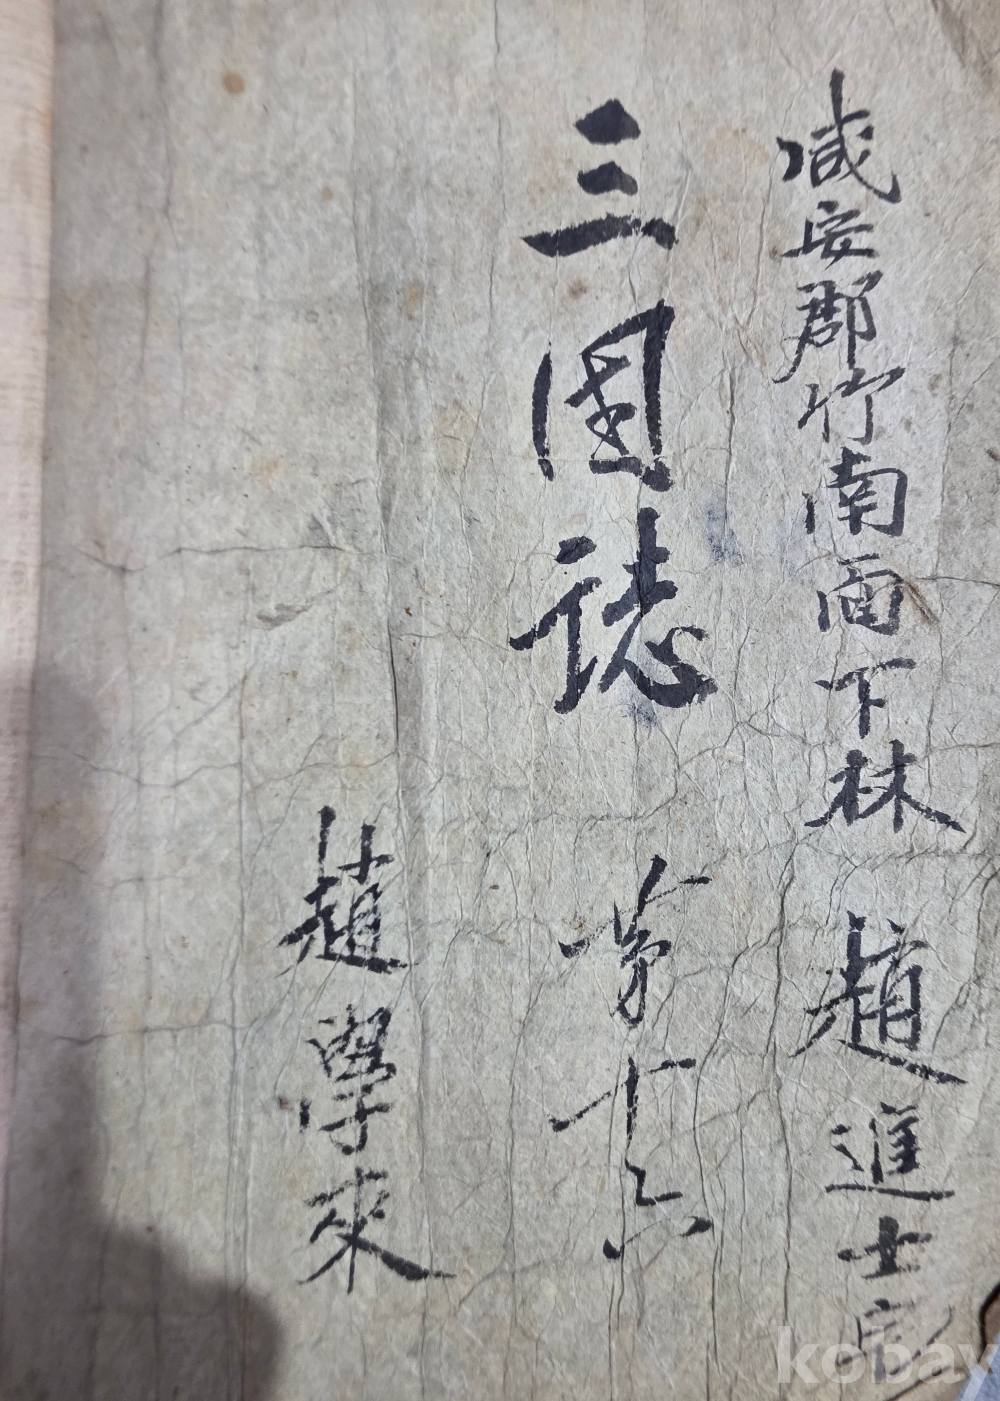 咸安郡竹南面下林 趙進士宅
三國誌 苐十六
趙學來
kobay